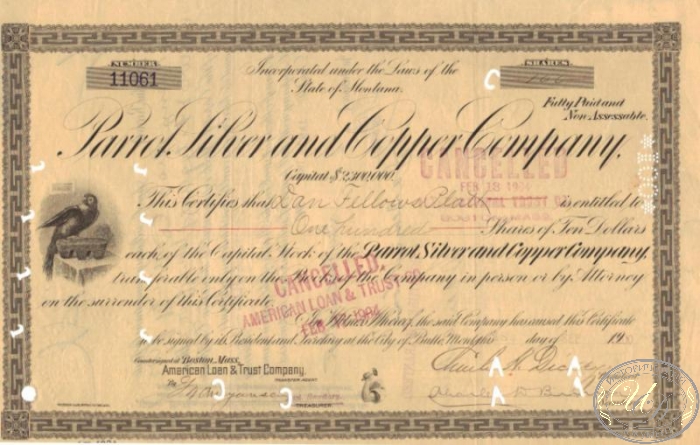 NUMBER
11061
SHARES
100
Incorporated under the Laws of the
State of Montana.
Fully Paid and
Non Assessable.
Parrot Silver and Copper Company.
Capital $2,300,000.
CANCELLED
FEB 18 1904
This Certifies that Dan Fellows Platt is entitled to
One hundred Shares of Ten Dollars
each of the Capital Stock of the Parrot Silver and Copper Company,
transferable only on the Books of the Company in person or by Attorney
on the surrender of this Certificate.
CANCELLED.
AMERICAN LOAN & TRUST CO.
FEB 1904
In Witness Whereof, the said Company has caused this Certificate
to be signed by its President and Secretary at the City of Butte, Montana day of 19
Countersigned at Boston, Mass.
American Loan & Trust Company.
TRANSFER AGENT
TREASURER.